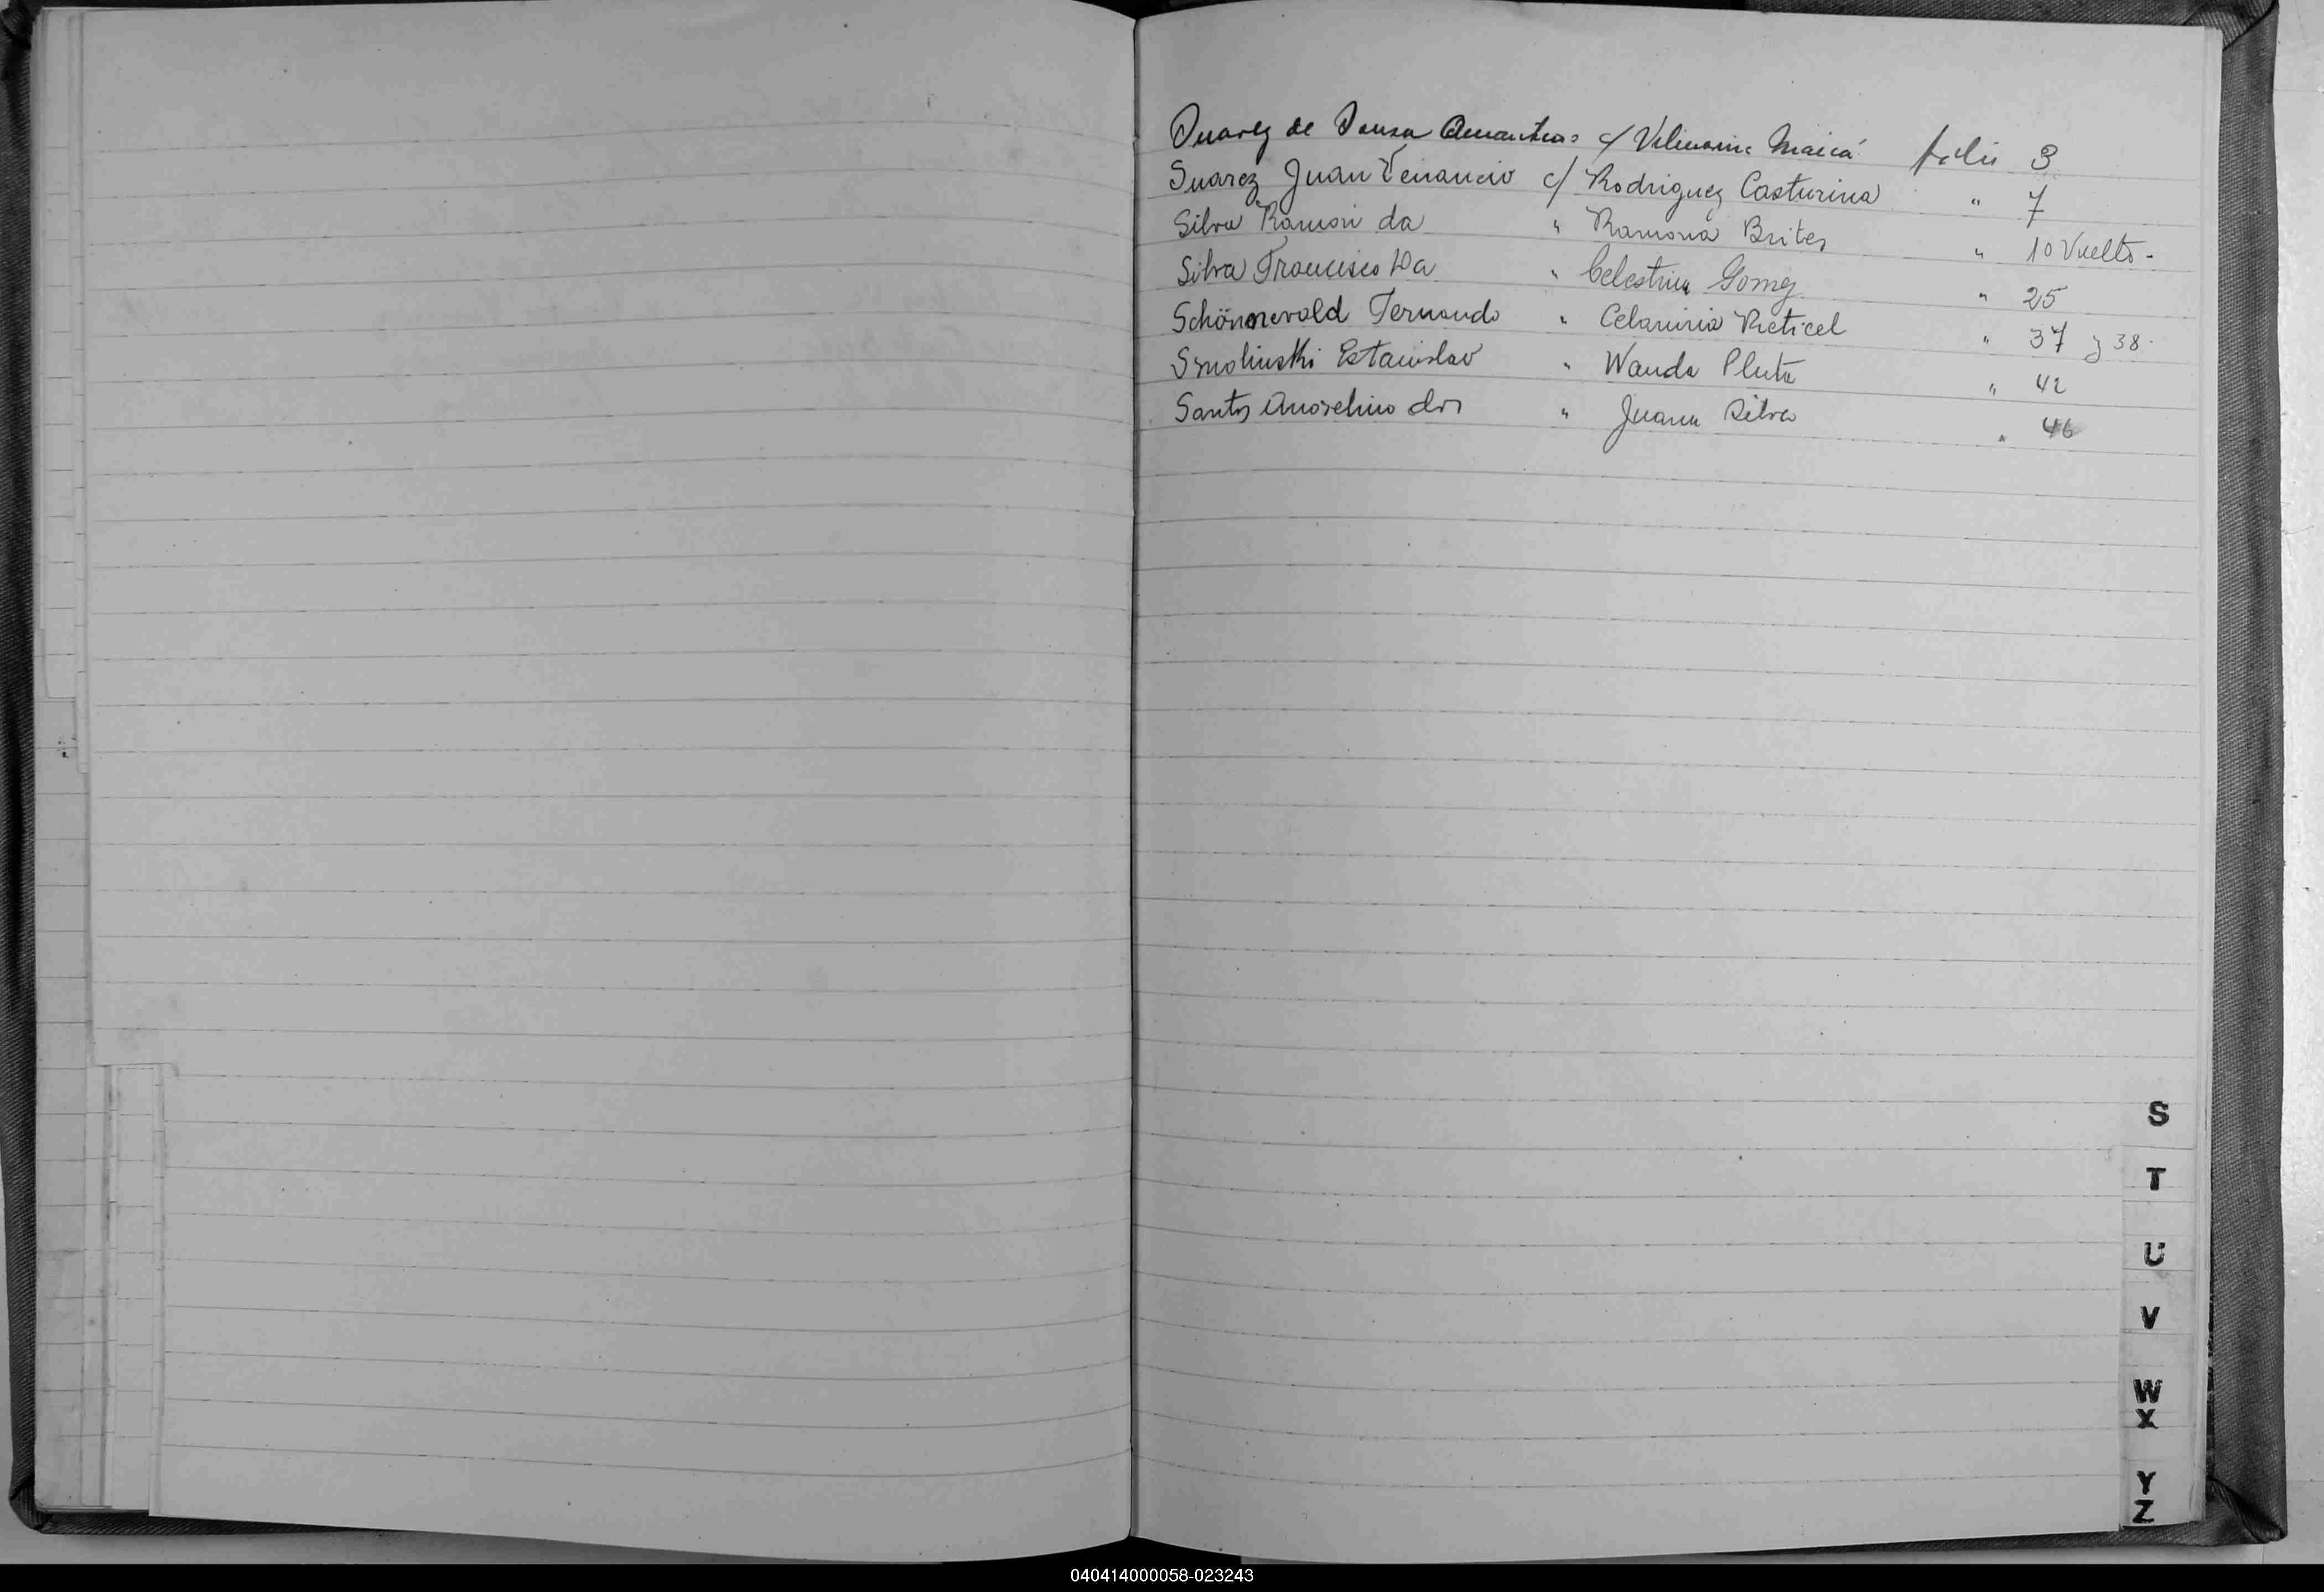 Suarez de Souza c/ Maicá folio 3
Suarez Juan Venancio c/ Rodriguez Casturina " 7
Silva Ramon da " Ramona Brites " 10 Vuelto-
Silva Francisco Da " Celestina Gomez " 25
Fernando " " 37 y 38-
Smolinski Estanislao " Wanda Pluta " 42
Santos dos " Juana Silva " 46
S
T
U
V
W
X
Y
Z
040414000058-023243